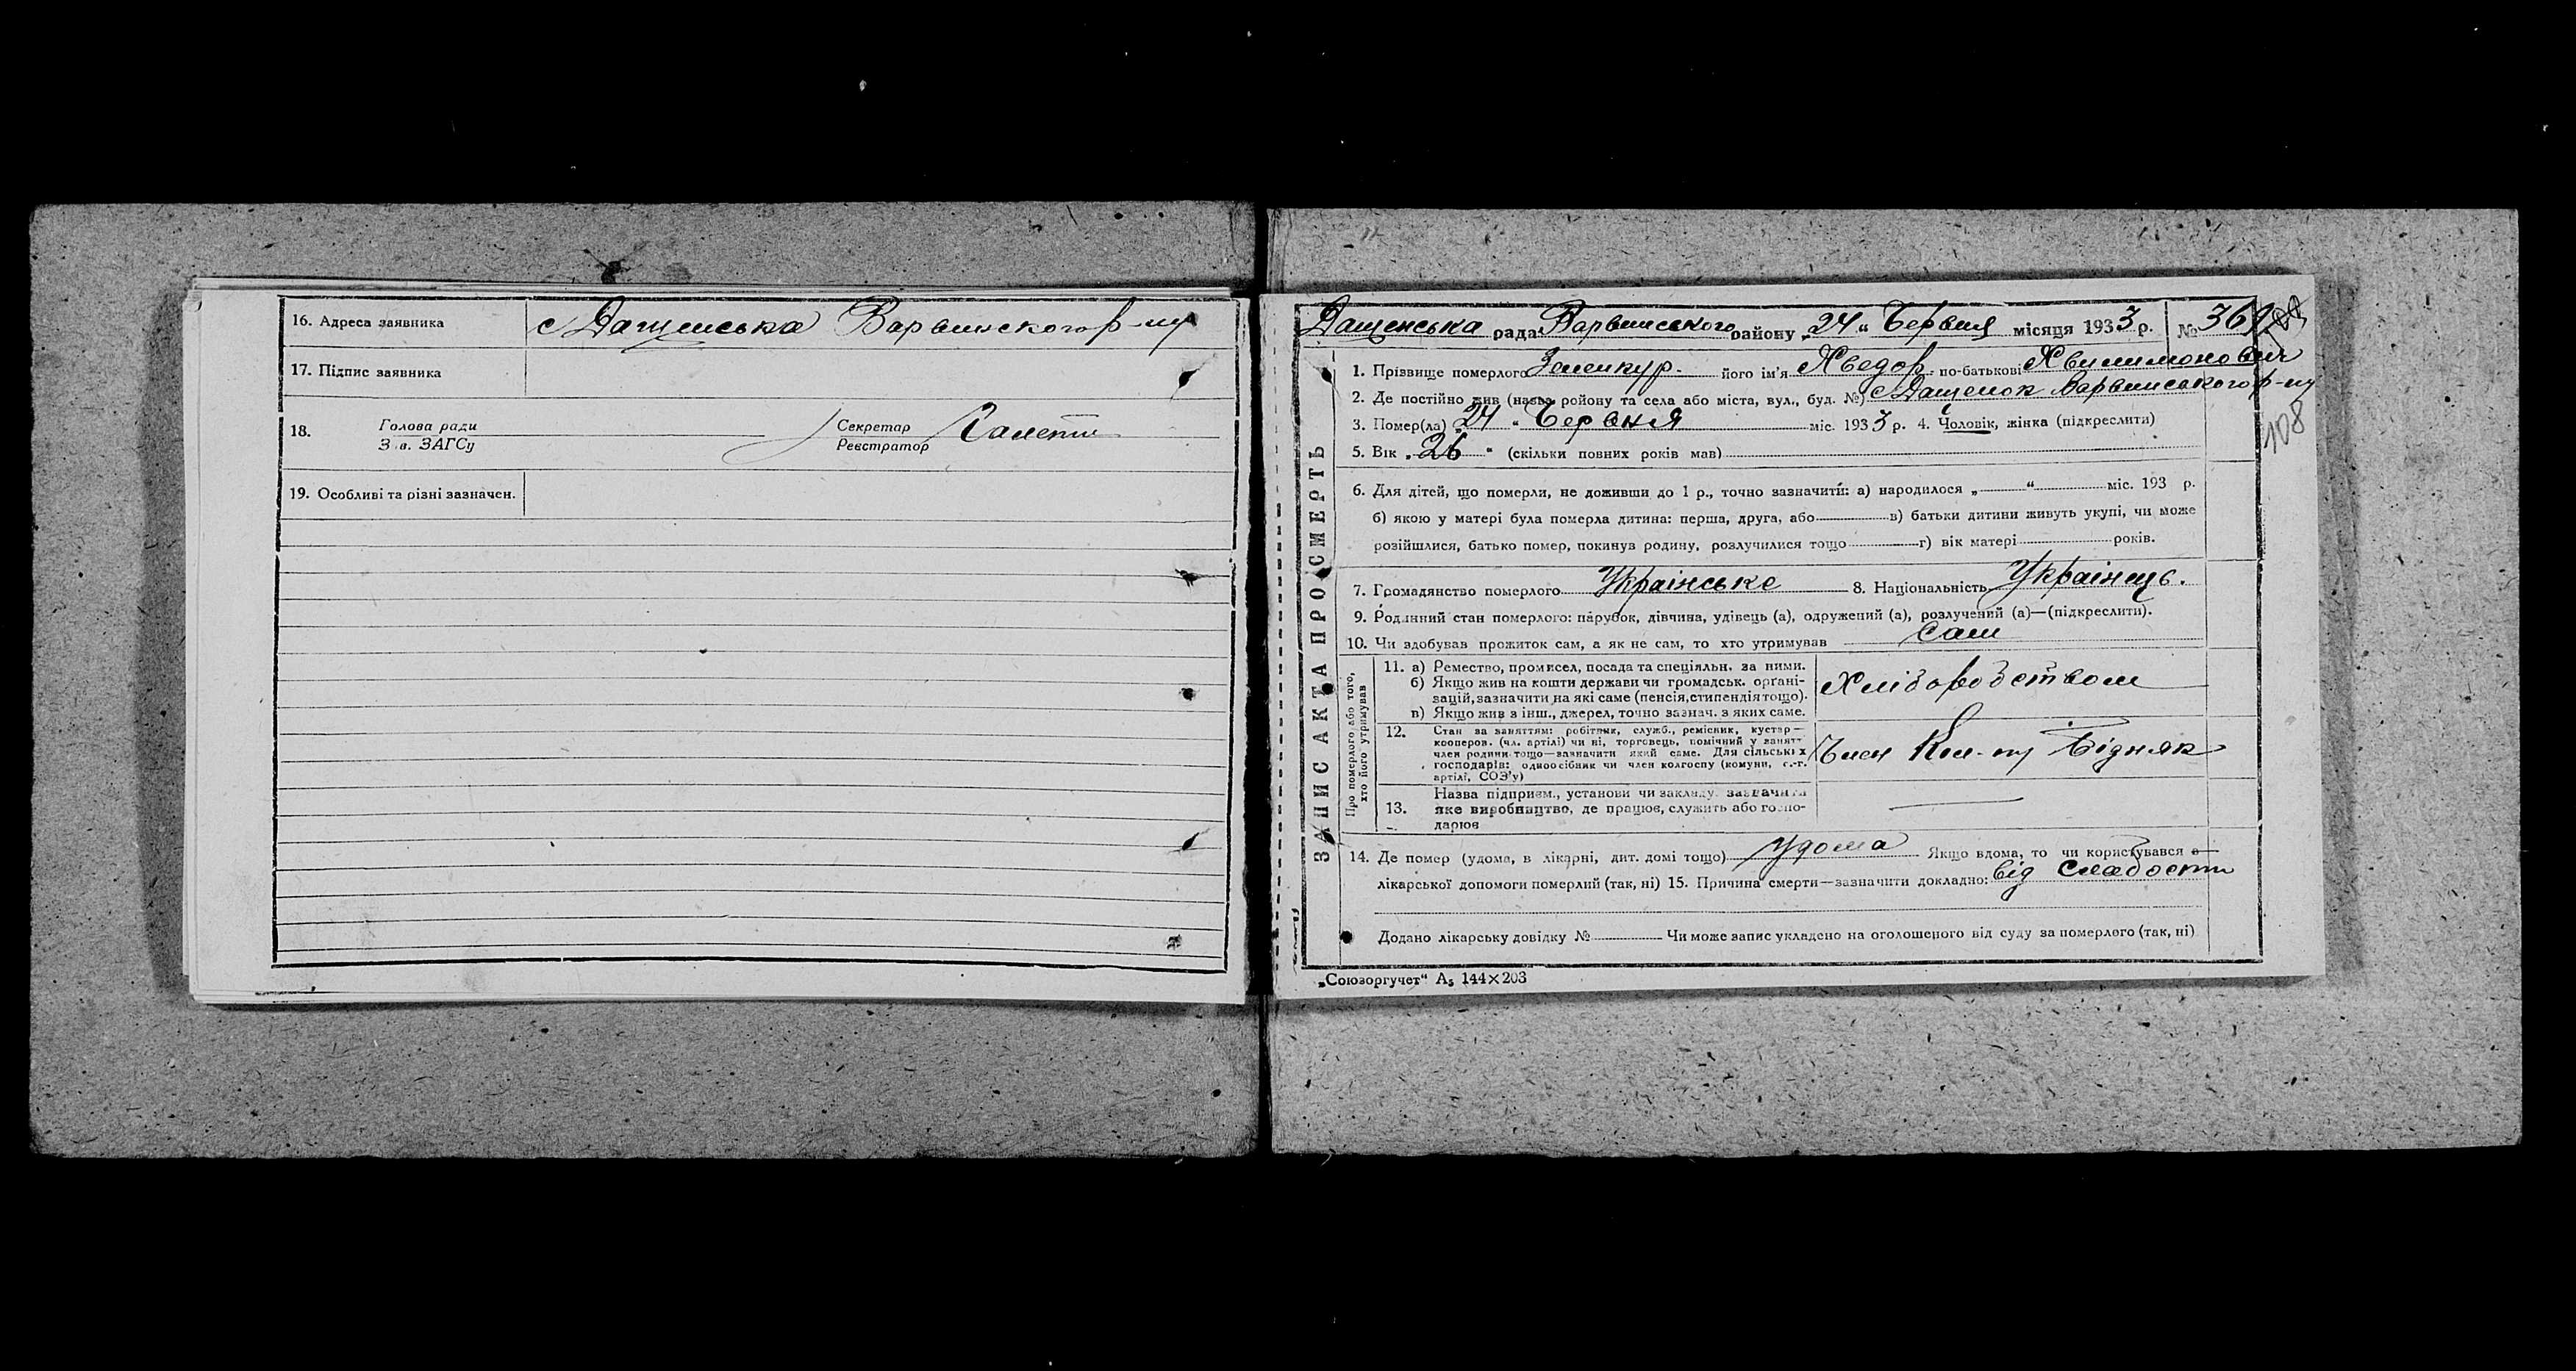 16. Адреса заявника с Дащенська Варвинского р-ну
17. Підпис заявника
18. Голова ради
З.в. ЗАГСу
Секретар
Реєстратор
19. Особливі та різні зазначен.
Дащенська рада Варвинського району „24“ Червня місяця 1933 р. № 369
108
ЗАПИС АКТА ПРО СМЕРТЬ
1. Прізвище померлого його ім'я Хведор по-батькові Хвилимонович
2. Де постійно жив (назва ройону та села або міста, вул., буд. №) с Дащенок Варвинського р-ну
3. Помер(ла) „24“ Червня міс. 1933 р. 4. Чоловік, жінка (підкреслити)
5. Вік „26“ (скільки повних років мав)
6. Для дітей, що померли, не доживши до 1 р., точно зазначити: а) народилося „ “ міс. 193 р.
б) якою у матері була померла дитина: перша, друга, або в) батьки дитини живуть укупі, чи може
розійшлися, батько помер, покинув родину, розлучилися тощо г) вік матері років.
7. Громадянство померлого Українське 8. Національність Українець.
9. Родинний стан померлого: парубок, дівчина, удівець (а), одружений (а), розлучений (а)—(підкреслити).
10. Чи здобував прожиток сам, а як не сам, то хто утримував сам
Про померлого або того,
хто його утримував
11. а) Ремество, промисел, посада та спеціяльн. за ними.
б) Якщо жив на кошти держави чи громадськ. орґані-
зацій, зазначити на які саме (пенсія, стипендія тощо).
в) Якщо жив з інш., джерел, точно зазнач. з яких саме.
Хліборобством
12. Стан за заняттям: робітник, служб., ремісник, кустар—
кооперов. (чл. артілі) чи ні, торговець, помічний у занятт
член родини тощо—зазначити який саме. Для сільських
господарів: одноосібник чи член колгоспу (комуни, с.-г.
артілі, СОЗ'у)
Член Кол-пу Бідняк
13. Назва підприєм., установи чи закладу, зазначити
яке виробництво, де працює, служить або госпо-
дарює
14. Де помер (удома, в лікарні, дит. домі тощо) удома Якщо вдома, то чи користувався з
лікарської допомоги померлий (так, ні) 15. Причина смерти—зазначити докладно: від слабости
Додано лікарську довідку № Чи може запис укладено на оголошеного від суду за померлого (так, ні)
„Союзоргучет“ А5 144×203